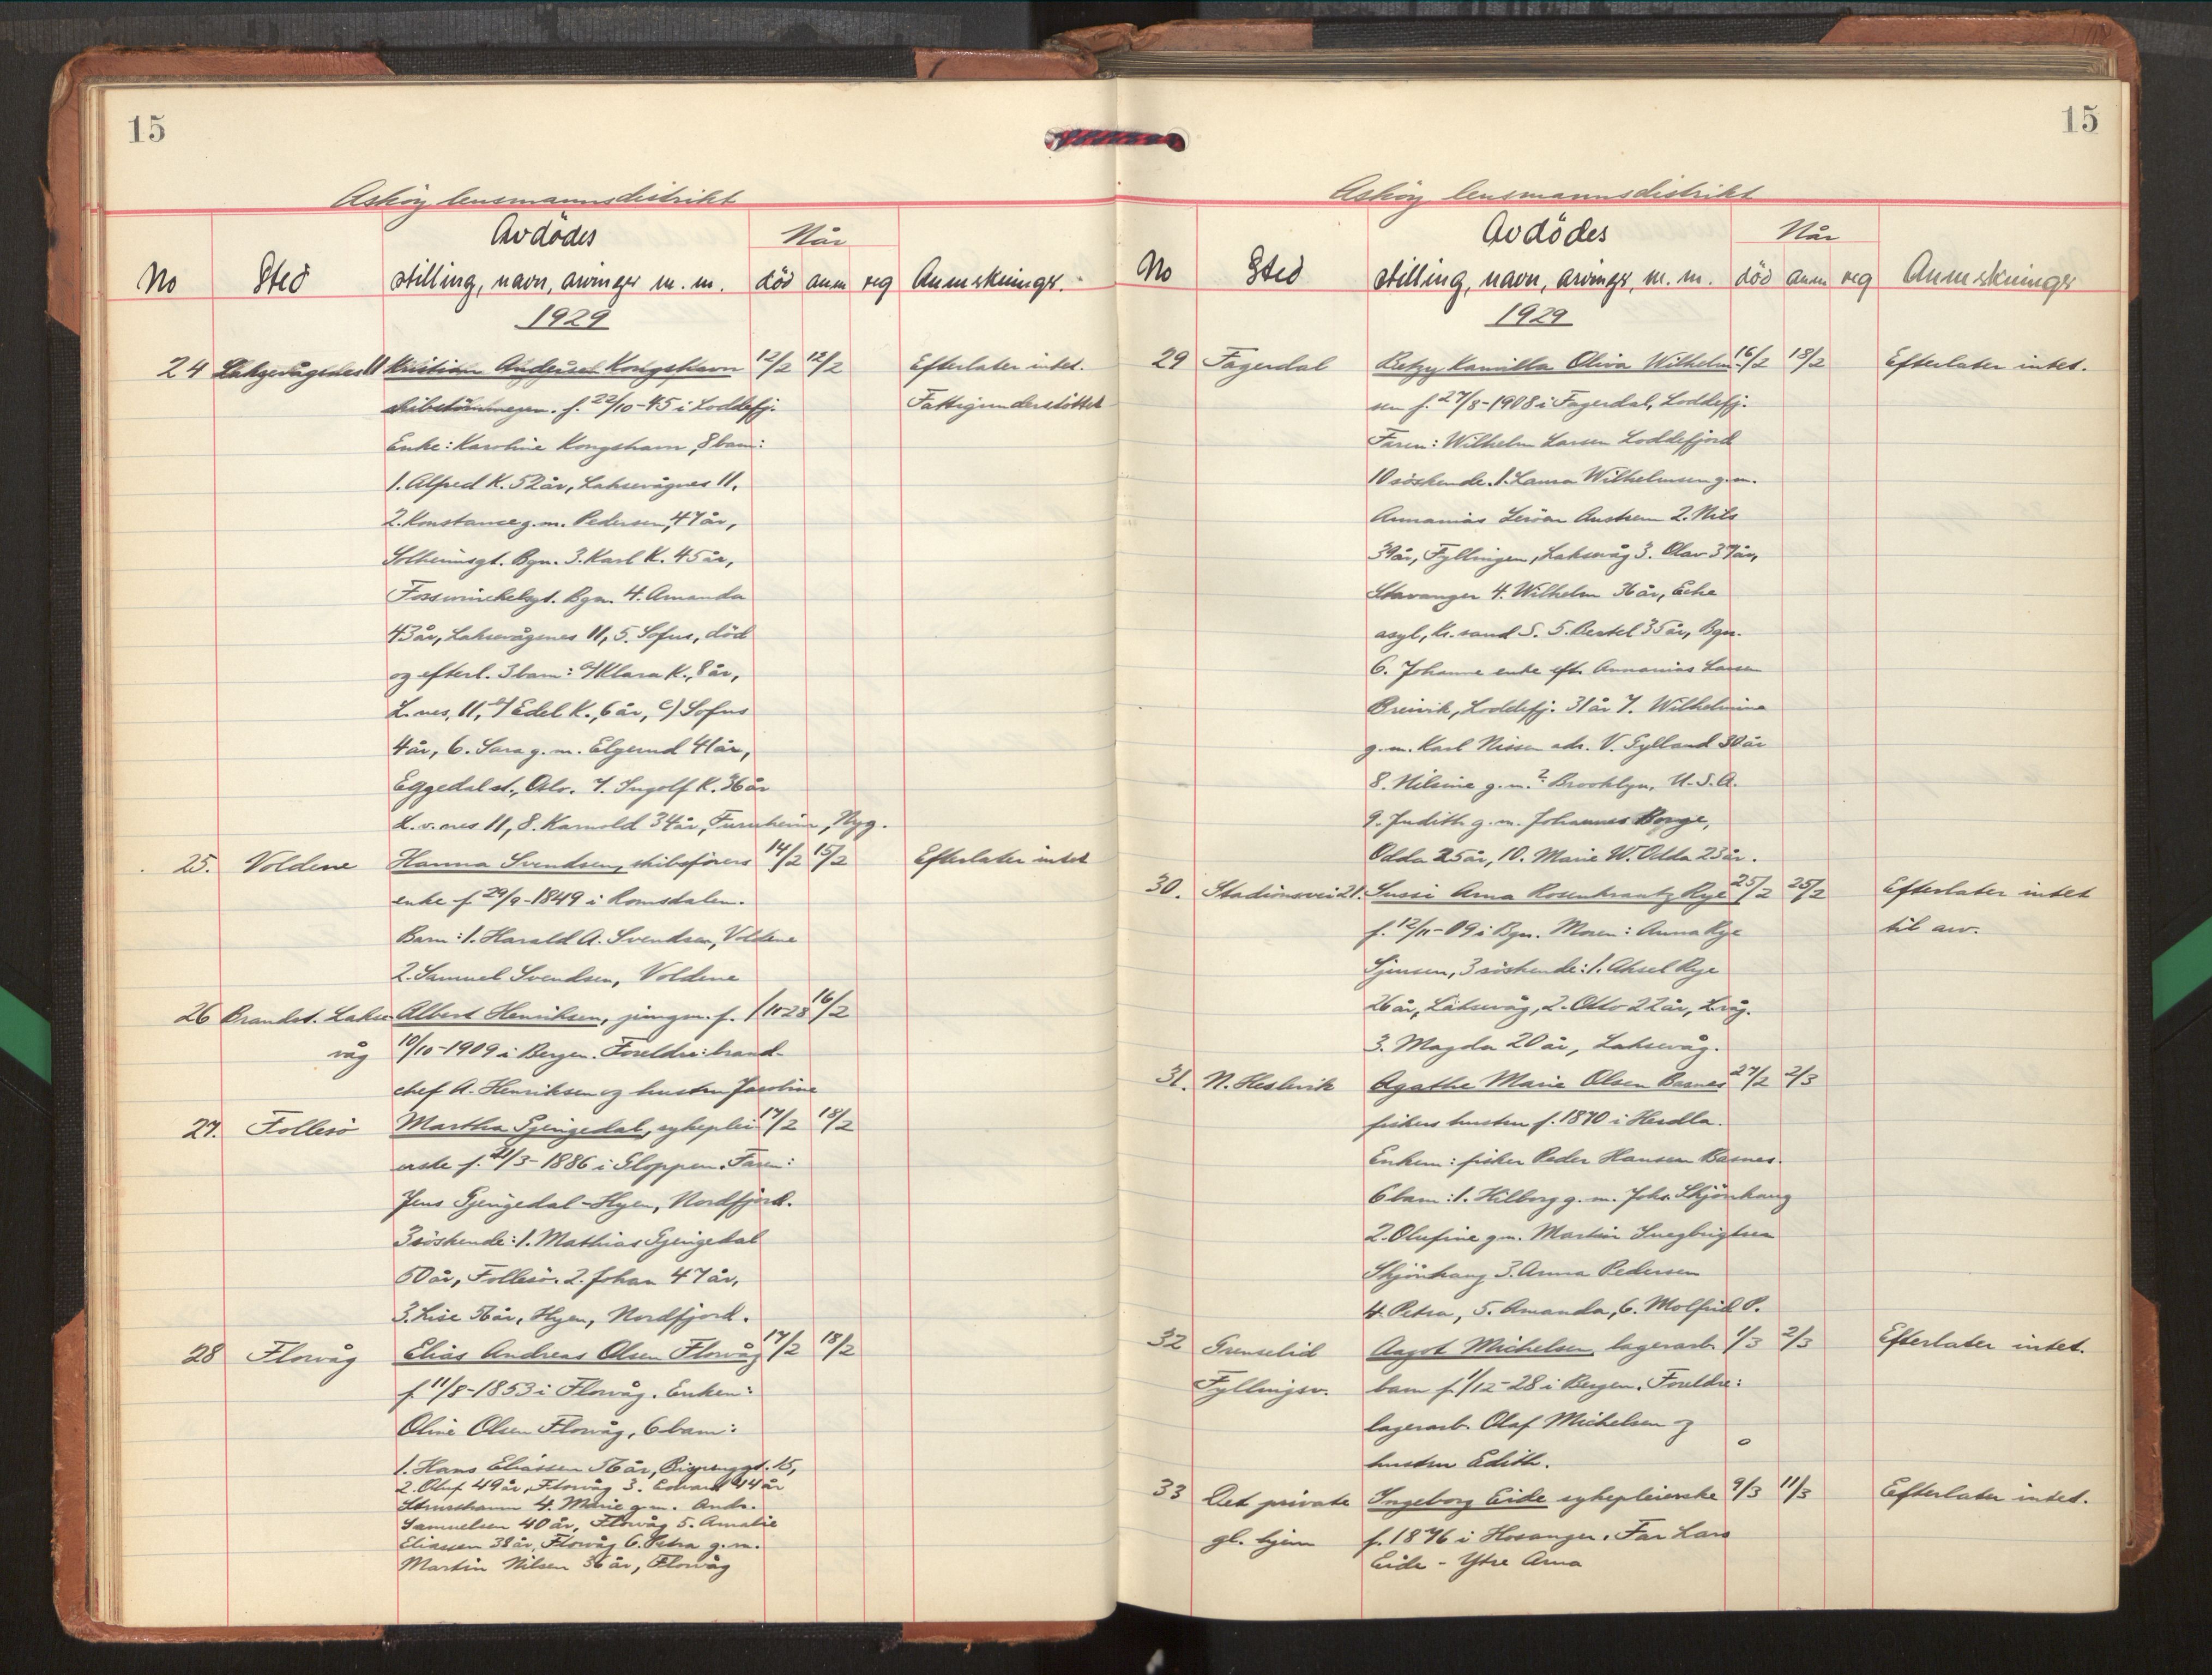 15
Askøy lensmannsdistrikt
No Sted Avdödes stilling, navn, arvinger m. m. Når död anm reg Anmerkninger.
1929
24 Laksevågsnes 11 Kristian Andersen Kongshavn 12/2 12/2 Efterlater intet.
skibstömmermann. f. 22/10-45 i Loddefj. Fattigunderstöttet
Enke: Karoline Kongshavn, 8 barn:
1. Alfred K. 52 år, Laksevågnes 11.
2. Konstance g.m. Pedersen, 47 år,
Solheimsgt. Bgn. 3. Karl K. 45 år,
Fosswinckelsgt. Bgn. 4. Amanda
43 år, Laksevågnes 11, 5. Sofus, död
og efterl. 3 barn: a/ Klara K., 8 år,
L.nes, 11, b/ Edel K., 6 år, c/ Sofus
4 år, 6. Sara g.m. Elgerud 41 år,
Eggedal st., Oslo. 7. Ingolf K. 36 år
L.v.nes 11, 8. Karnold 34 år, Furuheim, Nyg.
25. Voldene Hanna Svendsen, skibsförers 14/2 15/2 Efterlater intet
enke f. 29/9-1849 i Romsdalen.
Barn: 1. Harald A. Svendsen, Voldene
2. Samuel Svendsen, Voldene
26 Brandst. Lakse Albert Henriksen, jungm. f. /10-28 16/2
våg 10/10-1909 i Bergen. Foreldre: brand-
chef A. Henriksen og hustru Jacobine
27. Follesö Martha Gjengedal, sykeplei 17/2 18/2
erske f. 21/3-1886 i Gloppen. Faren:
Jens Gjengedal-Hyen, Nordfjord.
3 söskende: 1. Mathias Gjengedal
50 år, Follesö. 2. Johan 47 år,
3. Lise 56 år, Hyen, Nordfjord.
28 Florvåg Elias Andreas Olsen Florvåg 17/2 18/2
f. 11/8-1853 i Florvåg. Enken:
Oline Olsen Florvåg, 6 barn:
1. Hans Eliassen 56 år, 15,
2. Oluf 49 år, Florvåg 3. Edvard 44 år
Strusshamn 4. Marie g.m. Andr.
Samuelsen 40 år, Florvåg 5. Amalie
Eliassen 38 år, Florvåg 6. Petra g.m.
Martin Nilsen 36 år, Florvåg
15
Askøy lensmannsdistrikt
No Sted Avdödes stilling, navn, arvinger, m. m. Når död anm reg Anmerkninger
1929
29 Fagerdal Betzy Kamilla Oliva Wilhelm 16/2 18/2 Efterlater intet.
sen f. 27/8-1908 i Fagerdal, Loddefj.
Faren: Wilhelm Larsen Loddefjord
10 söskende. 1. Laura Wilhelmsen g.m.
Annanias Leröen Austrem 2. Nils
39 år, Fyllingen, Laksevåg 3. Olav 37 år,
Stavanger 4. Wilhelm 36 år, Eche
asyl, Kr.sand S. 5. Bertel 35 år, Bgn.
6. Johanne enke eft. Annanias Larsen
Breivik, Loddefj. 31 år 7. Wilhelmine
g.m. Karl Nissen adr. V. Gylland 30 år
8. Nilsine g.m. ? Brooklyn, U.S.A.
9. Judith g.m. Johannes Borge,
Odda 25 år, 10. Marie W. Odda 23 år.
30. Stadionsvei 21. Sussi Arna Rosenkrantz Rye 25/2 25/2 Efterlater intet
f. 12/11-09 i Bgn. Moren: Anna Rye til arv.
3 söskende: 1. Aksel Rye
26 år, Laksevåg, 2. Otto 22 år, L.våg.
3. Magda 20 år, Laksevåg.
31. N. Heslevik Agathe Marie Olsen Barnes 27/2 2/3
fiskers hustru f. 1870 i Herdla.
Enkem: fisker Peder Hansen Barnes.
6 barn: 1. Hilborg g.m. Johs. Skjönhaug
2. Olufine g.m. Martin Ingebrigtsen
Skjönhaug 3. Anna Pedersen
4. Petra, 5. Amanda, 6. Molfrid P.
32 Grenselid Aagot Michelsen, lagerarb. 1/3 2/3 Efterlater intet.
Fyllingsv. barn f. 1/12-28 i Bergen. Foreldre:
lagerarb. Olaf Michelsen og
hustru Edith.
33 Det private Ingeborg Eide sykepleierske 9/3 11/3 Efterlater intet.
gl. hjem f. 1876 i Hosanger. Far Lars
Eide - Ytre Arna